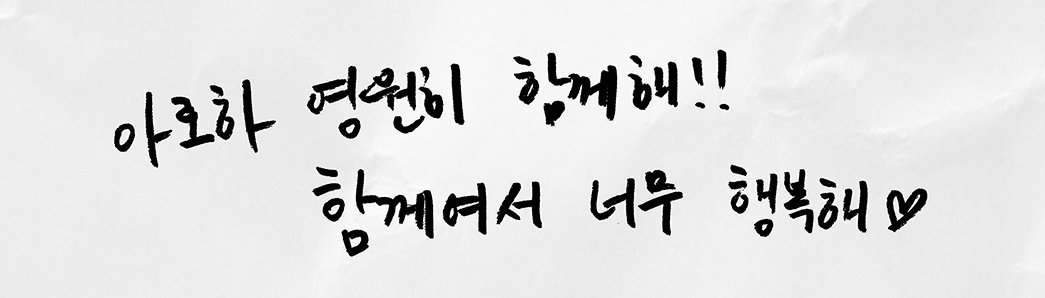 아로하 영원히 함께해!!
함께여서 너무 행복해♡